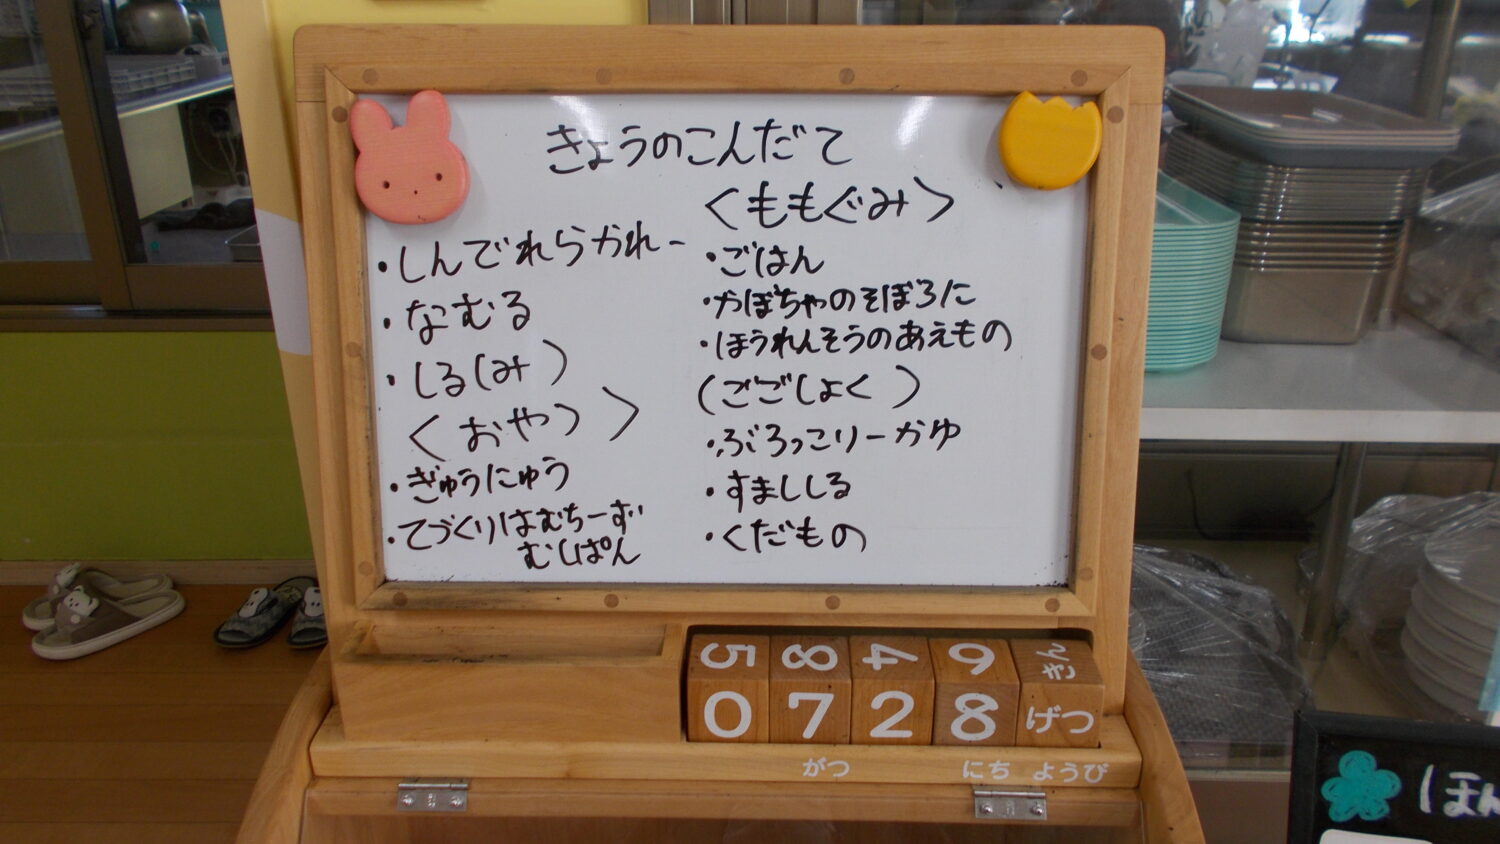 きょうのこんだて
・しんでれらかれー
・なむる
・しる(み)
<おやつ>
・ぎゅうにゅう
・てづくりはむちーず
むしぱん
<ももぐみ>
・ごはん
・かぼちゃのそぼろに
・ほうれんそうのあえもの
(ごごしょく)
・ぶろっこりーかゆ
・すましじる
・くだもの
5 8 4 9 きん
0 7 2 8 げつ
がつ にち ようび
ほん